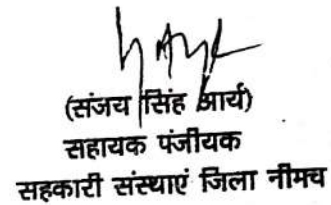 (संजय सिंह आर्य)
सहायक पंजीयक
सहकारी संस्थाएं जिला नीमच